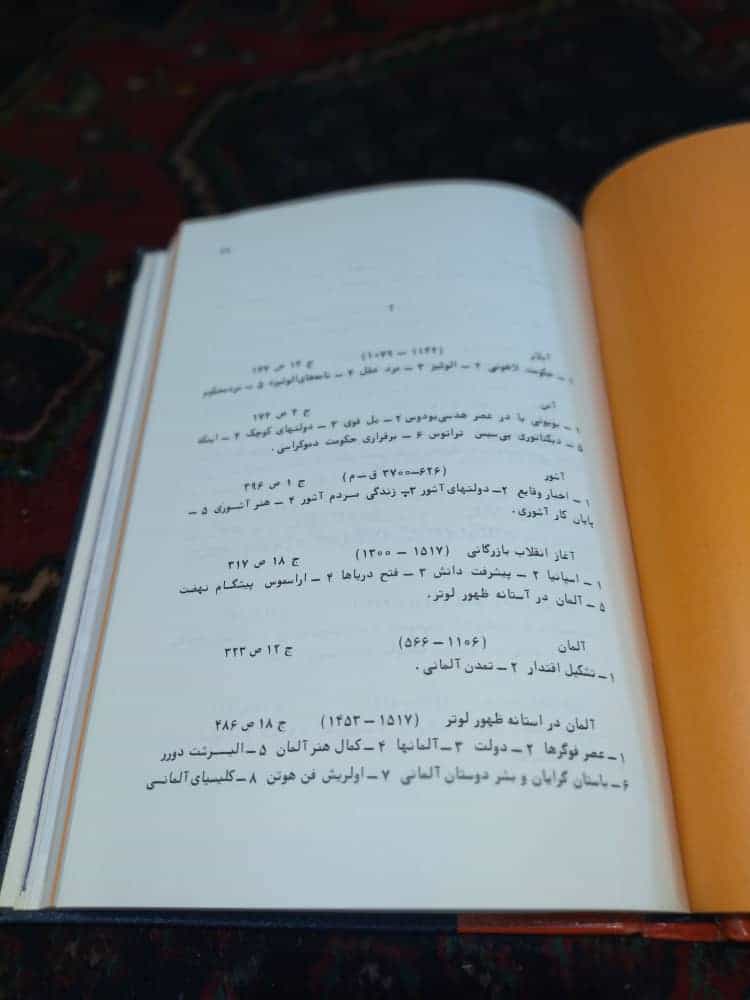 آ
آبلار (۱۱۴۲ – ۱۰۷۹) ج ۱۳ ص
۱ – حکومت لاهوتی ۲ – الوئیز ۳ – مرد عقل ۴ – نامه‌های الوئیزه ۵ – مرد محکوم
آتن ج ۴ ص ۱۷۴
۱ – بویوتی یا در عصر هسیودوس ۲ – بل فوی ۳ – دولتهای کوچک ۴ – اینکه
۵ – دیکتاتوری پی‌سیس تراتوس ۶ – برقراری حکومت دموکراسی .
آشور (۶۲۶–۳۷۰۰ ق – م) ج ۱ ص ۳۹۶
۱ – اخبار وقایع ۲ – دولتهای آشور ۳ – زندگی مردم آشور ۴ – هنر آشوری ۵ –
پایان کار آشوری .
آغاز انقلاب بازرگانی (۱۵۱۷ – ۱۳۰۰) ج ۱۸ ص ۳۱۷
۱ – اسپانیا ۲ – پیشرفت دانش ۳ – فتح دریاها ۴ – اراسموس پیشگام نهضت
۵ – آلمان در آستانه ظهور لوتر .
آلمان (۱۱۰۶ – ۵۶۶) ج ۱۲ ص ۳۲۳
۱ – تشکیل اقتدار ۲ – تمدن آلمانی .
آلمان در استانه ظهور لوتر (۱۵۱۷ – ۱۴۵۳) ج ۱۸ ص ۴۸۶
۱ – عصر فوگرها ۲ – دولت ۳ – آلمانها ۴ – کمال هنر آلمان ۵ – البرشت دورر
۶ – باستان گرایان و بشر دوستان آلمانی ۷ – اولریش فن هوتن ۸ – کلیسیای آلمانی